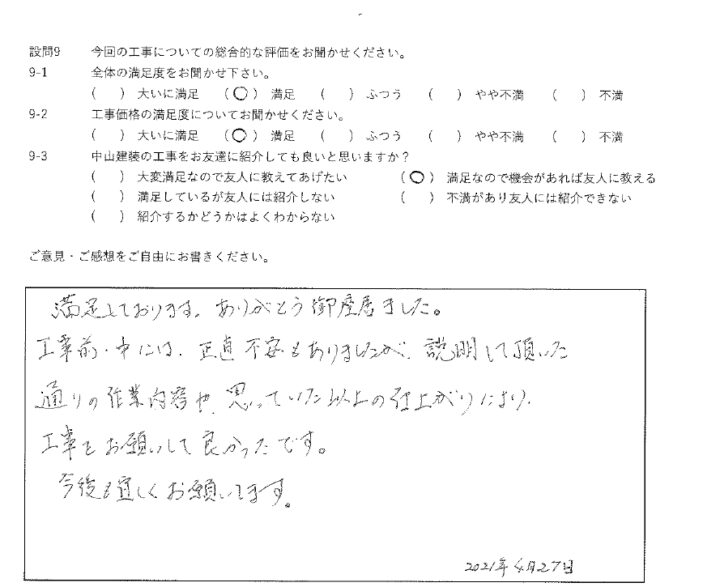 設問9 今回の工事についての総合的な評価をお聞かせください。
9-1 全体の満足度をお聞かせ下さい。
( ) 大いに満足 (○) 満足 ( ) ふつう ( ) やや不満 ( ) 不満
9-2 工事価格の満足度についてお聞かせください。
( ) 大いに満足 (○) 満足 ( ) ふつう ( ) やや不満 ( ) 不満
9-3 中山建装の工事をお友達に紹介しても良いと思いますか?
( ) 大変満足なので友人に教えてあげたい (○) 満足なので機会があれば友人に教える
( ) 満足しているが友人には紹介しない ( ) 不満があり友人には紹介できない
( ) 紹介するかどうかはよくわからない
ご意見・ご感想をご自由にお書きください。
満足しております。ありがとう御座居ました。
工事前・中には、正直不安もありましたが、説明して頂いた
通りの作業内容や、思っていた以上の仕上がりにより、
工事をお願いして良かったです。
今後も宜しくお願いします。
2021年4月27日